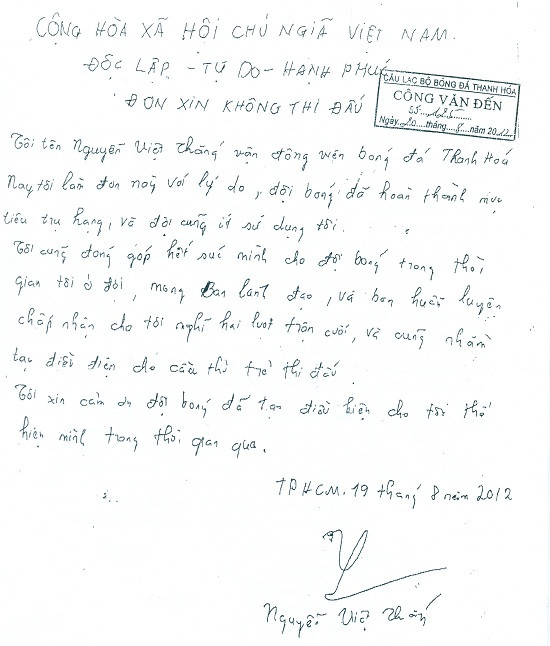 CỘNG HÒA XÃ HỘI CHỦ NGIÃ VIỆT NAM.
ĐỘC LẬP - TỰ DO - HẠNH PHÚC
ĐƠN XIN KHÔNG THI ĐẤU
CÂU LẠC BỘ BÓNG ĐÁ THANH HÓA
CÔNG VĂN ĐẾN
Số
Ngày 20 tháng 8 năm 2012
Tôi tên Nguyễn Việt Thắng vận động viên bóng đá Thanh Hoá
Nay tôi làm đơn này với lý do, đội bóng đã hoàn thành mục
tiêu trụ hạng, và đội cũng ít sử dụng tôi.
Tôi cũng đóng góp hết sức mình cho đội bóng trong thời
gian tôi ở đội, mong Ban lãnh đạo, và ban huấn luyện
chấp nhận cho tôi nghĩ hai lượt trận cuối, và cũng nhằm
tạo điều điện cho cầu thủ trẻ thi đấu
Tôi xin cảm ơn đội bóng đã tạo điều kiện cho tôi thể
hiện mình trong thời gian qua.
TPHCM. 19 tháng 8 năm 2012
Nguyễn Việt Thắng